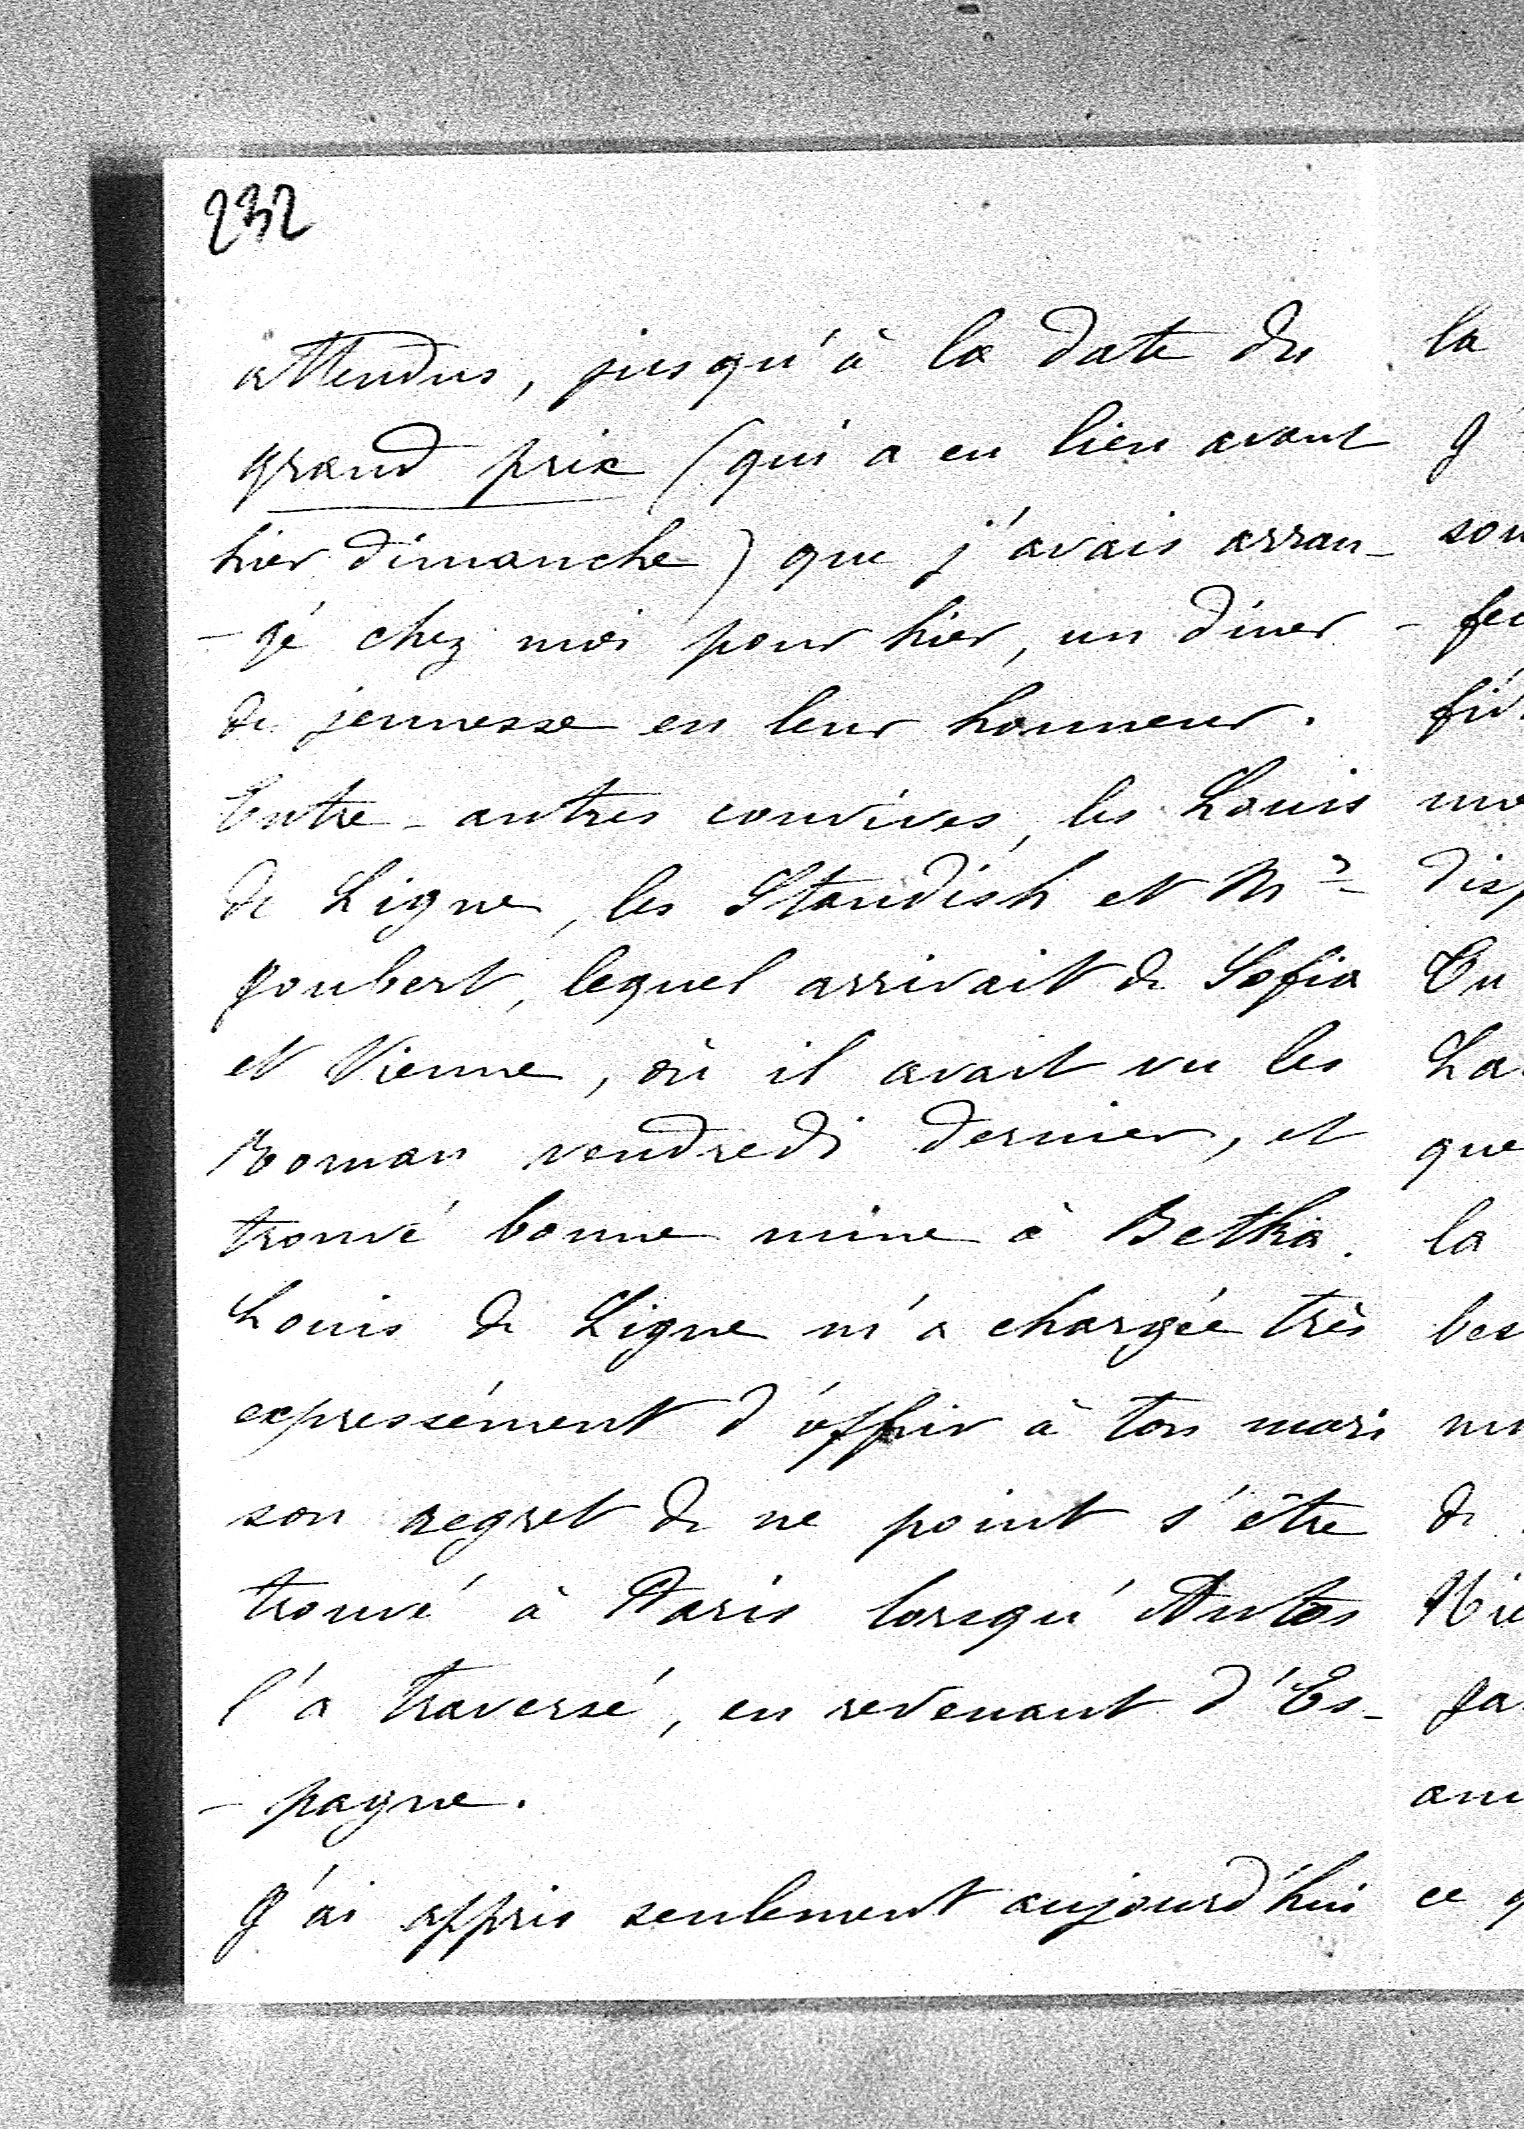 232
attendus, jusqu'à la date du
grand prix (qui a eu lieu avant
hier dimanche) que j'avais arran-
-gé chez moi pour hier, un dîner
de jeunesse en leur honneur.
Entre-autres convives, les Louis
de Ligne, les Standish et Mr
Joubert, lequel arrivait de Sofia
et Vienne, où il avait vu les
Roman vendredi dernier, et
trouvé bonne mine à Betka.
Louis de Ligne m'a chargée très
expressément d'offrir à ton mari
son regret de ne point s'être
trouvé à Paris lorsqu'Antos
l'a traversé, en revenant d'Es-
-pagne.
J'ai appris seulement aujourd'hui
la
J'
son
-
mo
disp
En
La
que
la
bes
de
am
ce q